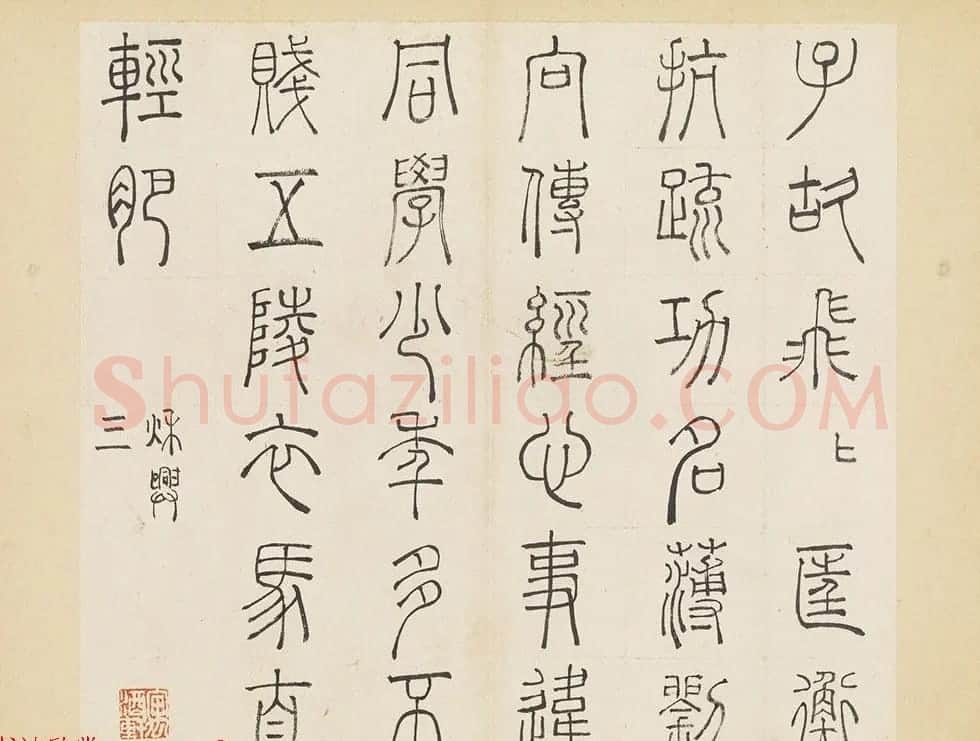 子故飛〻匡衡
抗疏功名薄劉
向傳經心事違
同學少年多不
賤五陵衣馬自
輕肥
秋興
三
Shufaziliao.COM